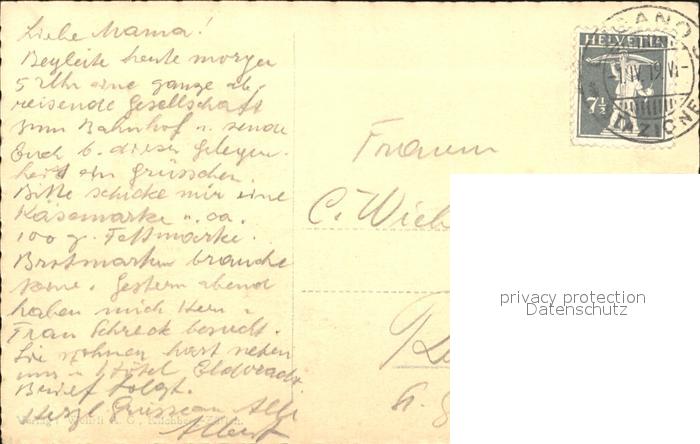 Liebe Mama!
Begleite heute morgen
5 Uhr eine ganze ab-
reisende Gesellschaft
zum Bahnhof u. sende
Euch b. dieser Gelegen-
heit ein Grüsschen.
Bitte schicke mir eine
Käsemarke u. ca.
100 g. Fettmarke.
Brotmarken brauche
keine. Gestern abend
haben mich Herr u.
Frau Schreck besucht.
Sie wohnen hart neben
uns Hôtel Eldorado.
Brief folgt.
Herzl. Grüsse an Alle
Albert
Verlag: Wehrli A. G., Kilchberg-Zürich.
HELVETIA
7½
LUGANO
Frauen
C. Wieh
privacy protection
Datenschutz